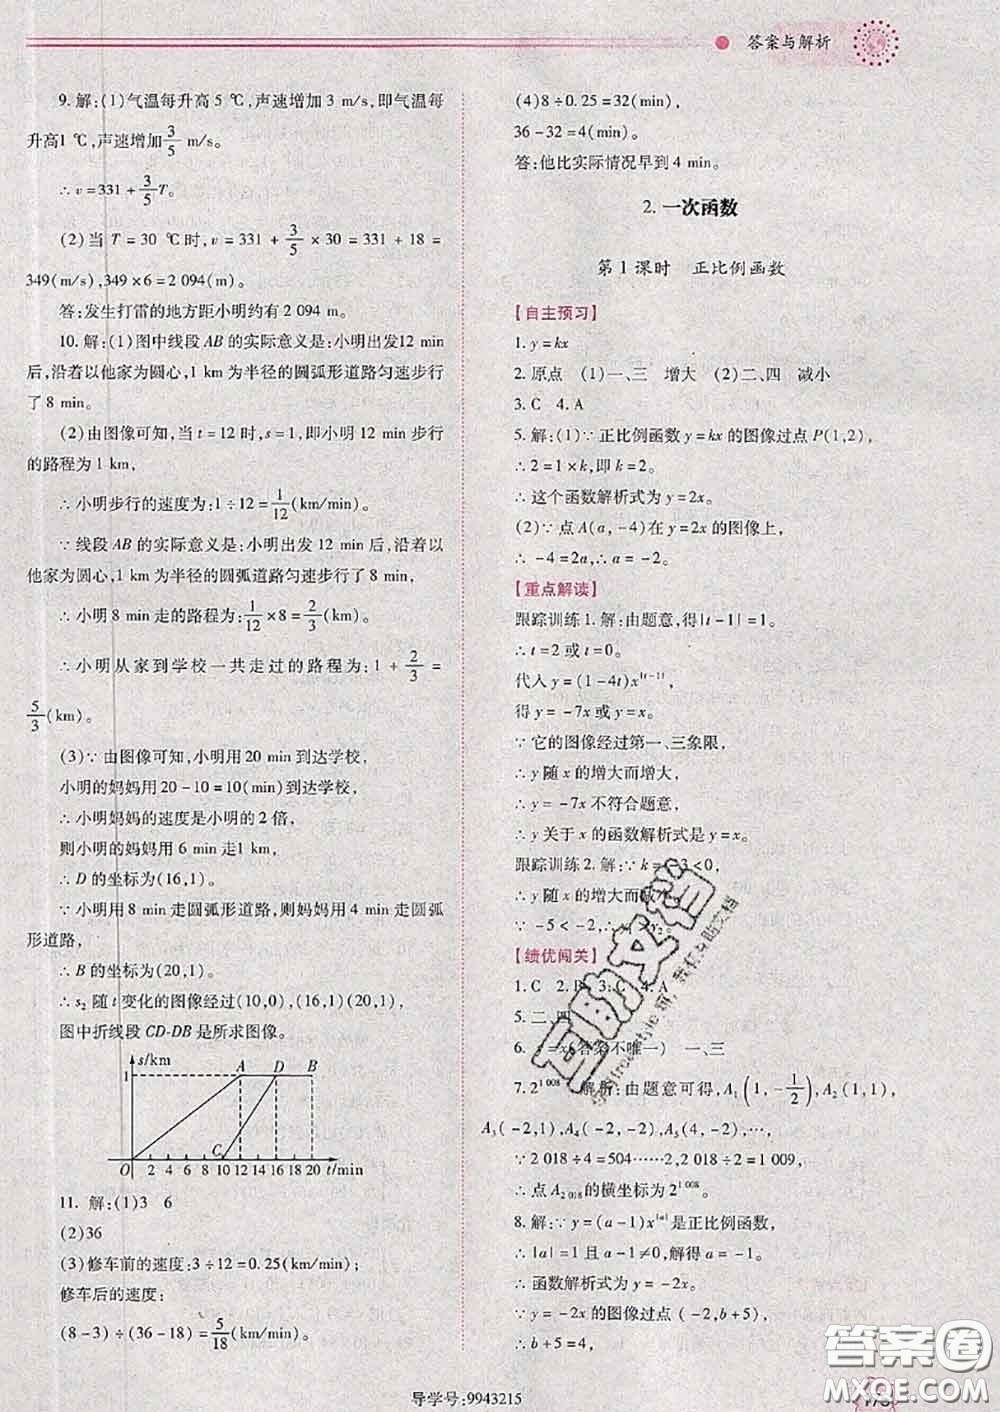 答案与解析
9.解:(1)气温每升高5 ℃,声速增加3 m/s,即气温每
升高1 ℃,声速增加3/5 m/s。
∴v=331+3/5T。
(2)当 T=30 ℃时,v=331+3/5×30=331+18=
349(m/s),349×6=2 094(m)。
答:发生打雷的地方距小明约有2 094 m。
10.解:(1)图中线段AB的实际意义是:小明出发12 min
后,沿着以他家为圆心,1 km为半径的圆弧形道路匀速步行
了8 min。
(2)由图像可知,当t=12时,s=1,即小明12 min步行
的路程为1 km,
∴小明步行的速度为:1÷12=1/12(km/min)。
∵线段AB的实际意义是:小明出发12 min后,沿着以
他家为圆心,1 km为半径的圆弧道路匀速步行了8 min,
∴小明8 min走的路程为:1/12×8=2/3(km)。
∴小明从家到学校一共走过的路程为:1+2/3=
5/3(km)。
(3)∵由图像可知,小明用20 min到达学校,
小明的妈妈用20-10=10(min)到达学校,
∴小明妈妈的速度是小明的2倍,
则小明的妈妈用6 min走1 km,
∴D的坐标为(16,1)。
∵小明用8 min走圆弧形道路,则妈妈用4 min走圆弧
形道路,
∴B的坐标为(20,1)。
∴s₂随t变化的图像经过(10,0),(16,1)(20,1),
图中折线段CD-DB是所求图像。
s/km
A D B
1
C
O 2 4 6 8 10 12 14 16 18 20 t/min
11.解:(1)3 6
(2)36
(3)修车前的速度:3÷12=0.25(km/min)
修车后的速度:
(8-3)÷(36-18)=5/18(km/min)。
(4)8÷0.25=32(min),
36-32=4(min)。
答:他比实际情况早到4 min。
2.一次函数
第1课时 正比例函数
【自主预习】
1.y=kx
2.原点 (1)一、三 增大 (2)二、四 减小
3.C 4.A
5.解:(1)∵正比例函数y=kx的图像过点P(1,2),
∴2=1×k,即k=2。
∴这个函数解析式为y=2x。
(2)∵点A(a,-4)在y=2x的图像上,
∴-4=2a,∴a=-2。
【重点解读】
跟踪训练1.解:由题意,得|t-1|=1。
∴t=2或t=0。
代入y=(1-4t)x^|t-1|,
得y=-7x或y=x。
∵它的图像经过第一、三象限,
∴y随x的增大而增大,
∴y=-7x不符合题意,
∴y关于x的函数解析式是y=x。
跟踪训练2.解:∵k= 3<0,
∴y随x的增大而减小。
∵-5<-2,∴
【绩优闯关】
1.C 2.B 3.C 4.A
5.二、四
6.y=x(答案不唯一) 一、三
7.2^1 008 解析:由题意可得,A₁(1,-1/2),A₂(1,1),
A₃(-2,1),A₄(-2,-2),A₅(4,-2),…,
∵2 018÷4=504……2,2 018÷2=1 009,
∴点A₂ ₀₁₈的横坐标为2^1 008。
8.解:∵y=(a-1)x^|a|是正比例函数,
∴|a|=1且a-1≠0,解得a=-1。
∴函数解析式为y=-2x。
∵y=-2x的图像过点(-2,b+5),
∴b+5=4,
导学号:9943215
互助文档
答案圈
MXQE.COM